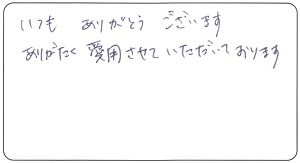 いつも ありがとう ございます
ありがたく 愛用させて いただいて おります